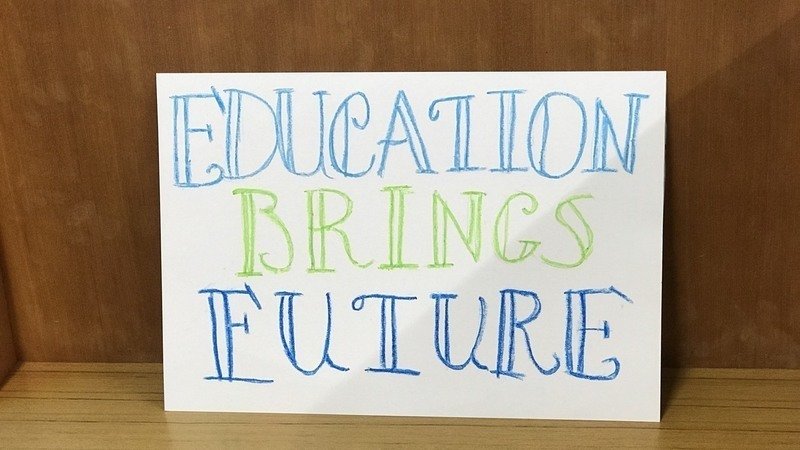 EDUCATION
BRINGS
FUTURE